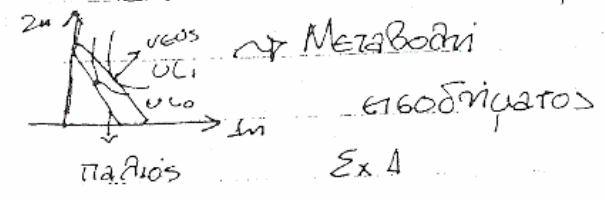 2η
νέος
UC1
UC0
1η
παλιός
Μεταβολή
εισοδήματος
Σχ Δ